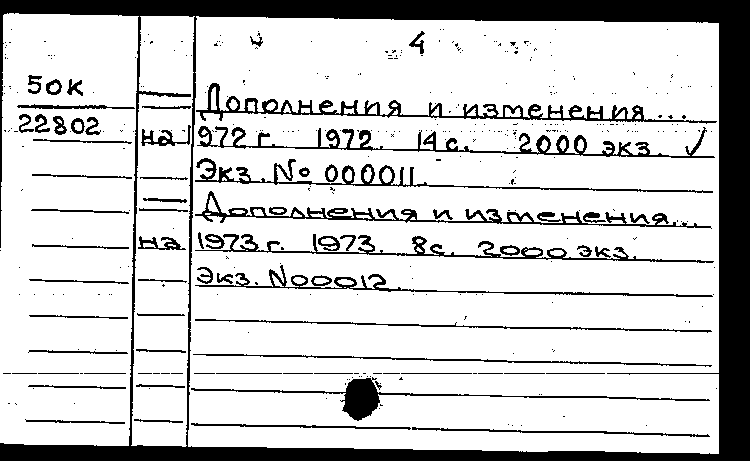 4
50к
22802
— Дополнения и изменения...
на 1972 г. 1972. 14 с. 2000 экз. ✓
Экз. № 000011.
— Дополнения и изменения...
на 1973 г. 1973. 8с. 2000 экз.
Экз. N00012.